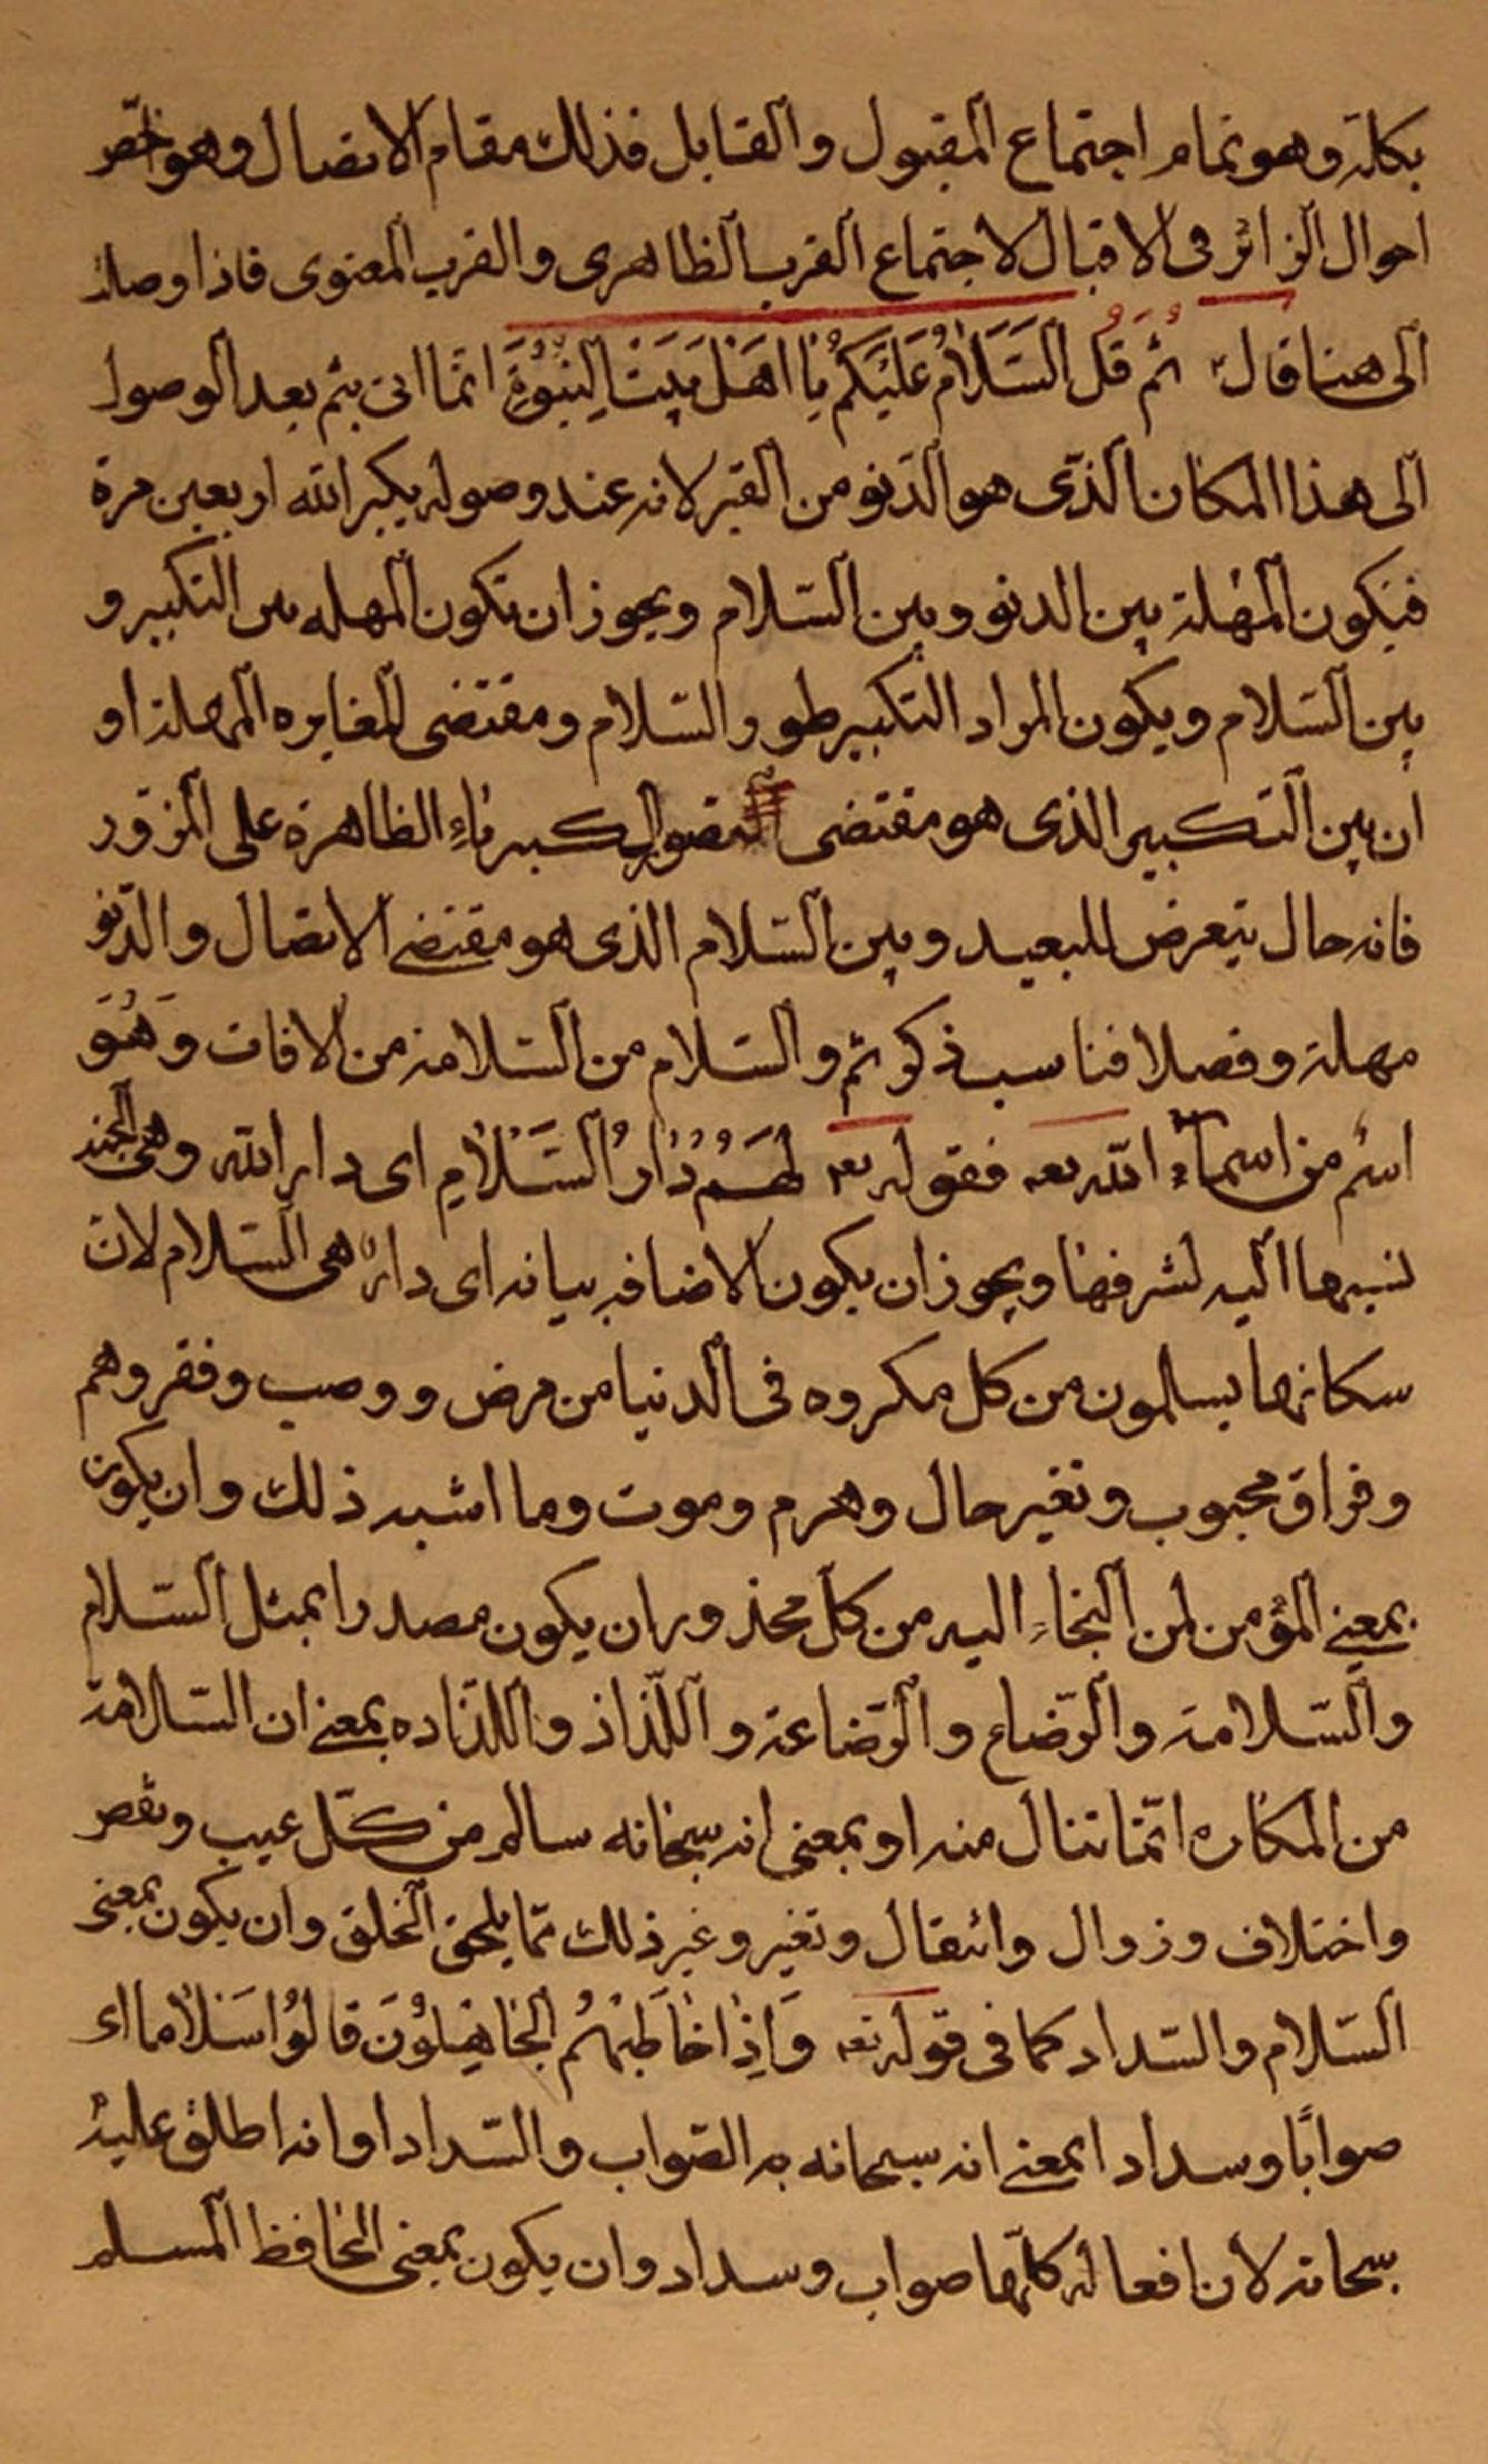 بكله وهو تمام اجتماع المقبول والقابل فذلك مقام الاتصال وهو اخصّ
احوال الزائر فى الاقبال لاجتماع القرب الظاهرى والقرب المعنوى فاذا وصلت
الى هنا قال ثم قُل السَّلَامُ عَلَيْكُمْ يا اَهْلَ بَيْتِ النُّبُوَّةِ انّما اتى بثم بعد الوصول
الى هذا المكان الذى هو الدّنو من القبر لانه عند وصوله يكبر الله اربعين مرة
فتكون المهلة بين الدنو وبين السّلام ويجوز ان تكون المهله بين التكبير و
بين السّلام ويكون المراد التكبير طور والسّلام ومقتضى المغايره المهلة او
ان بين التكبير الذى هو مقتضى الكبرياء الظاهرة على المزور
فانه حال يتعرض للبعيد وبين السّلام الذى هو مقتضى الاتصال والدّنو
مهلة وفصلا فناسب ذكر ثم والسّلام من السّلامة من الافات وَهُوَ
اسم من اسماء الله تعه فقوله تعه لَهُمْ دَارُ السَّلَامِ اى دار الله وهى الجنة
نسبها اليه لشرفها ويجوز ان يكون الاضافه بيانه اى دار هى السّلام لان
سكانها يسالمون من كل مكروه فى الدنيا من مرض ووصب وفقر وهم
وفراق محبوب وتغير حال وهرم وموت وما اشبه ذلك وان يكون
بمعنى المؤمن لمن التجاء اليه من كل محذور ان يكون مصدرا بمثل السّلام
والسّلامة والرّضاع والرّضاعة واللّذاذ واللّذاده بمعنى ان السّلامة
من المكاره انّما تنال منه او بمعنى انه سبحانه سالم من كلّ عيب ونقص
واختلاف وزوال وانتقال وتغير وغير ذلك ممّا يلحق الخلق وان يكون بمعنى
السّلام والسّداد كما فى قوله تعه وَاِذَا خَاطَبَهُمُ الجَاهِلُونَ قَالُوا سَلَاما اى
صوابًا وسدادا بمعنى انه سبحانه به الصّواب والسّداد او انه اطلق عليه
سبحانه لان افعاله كلّها صواب وسداد وان يكون بمعنى الحافظ المسلم